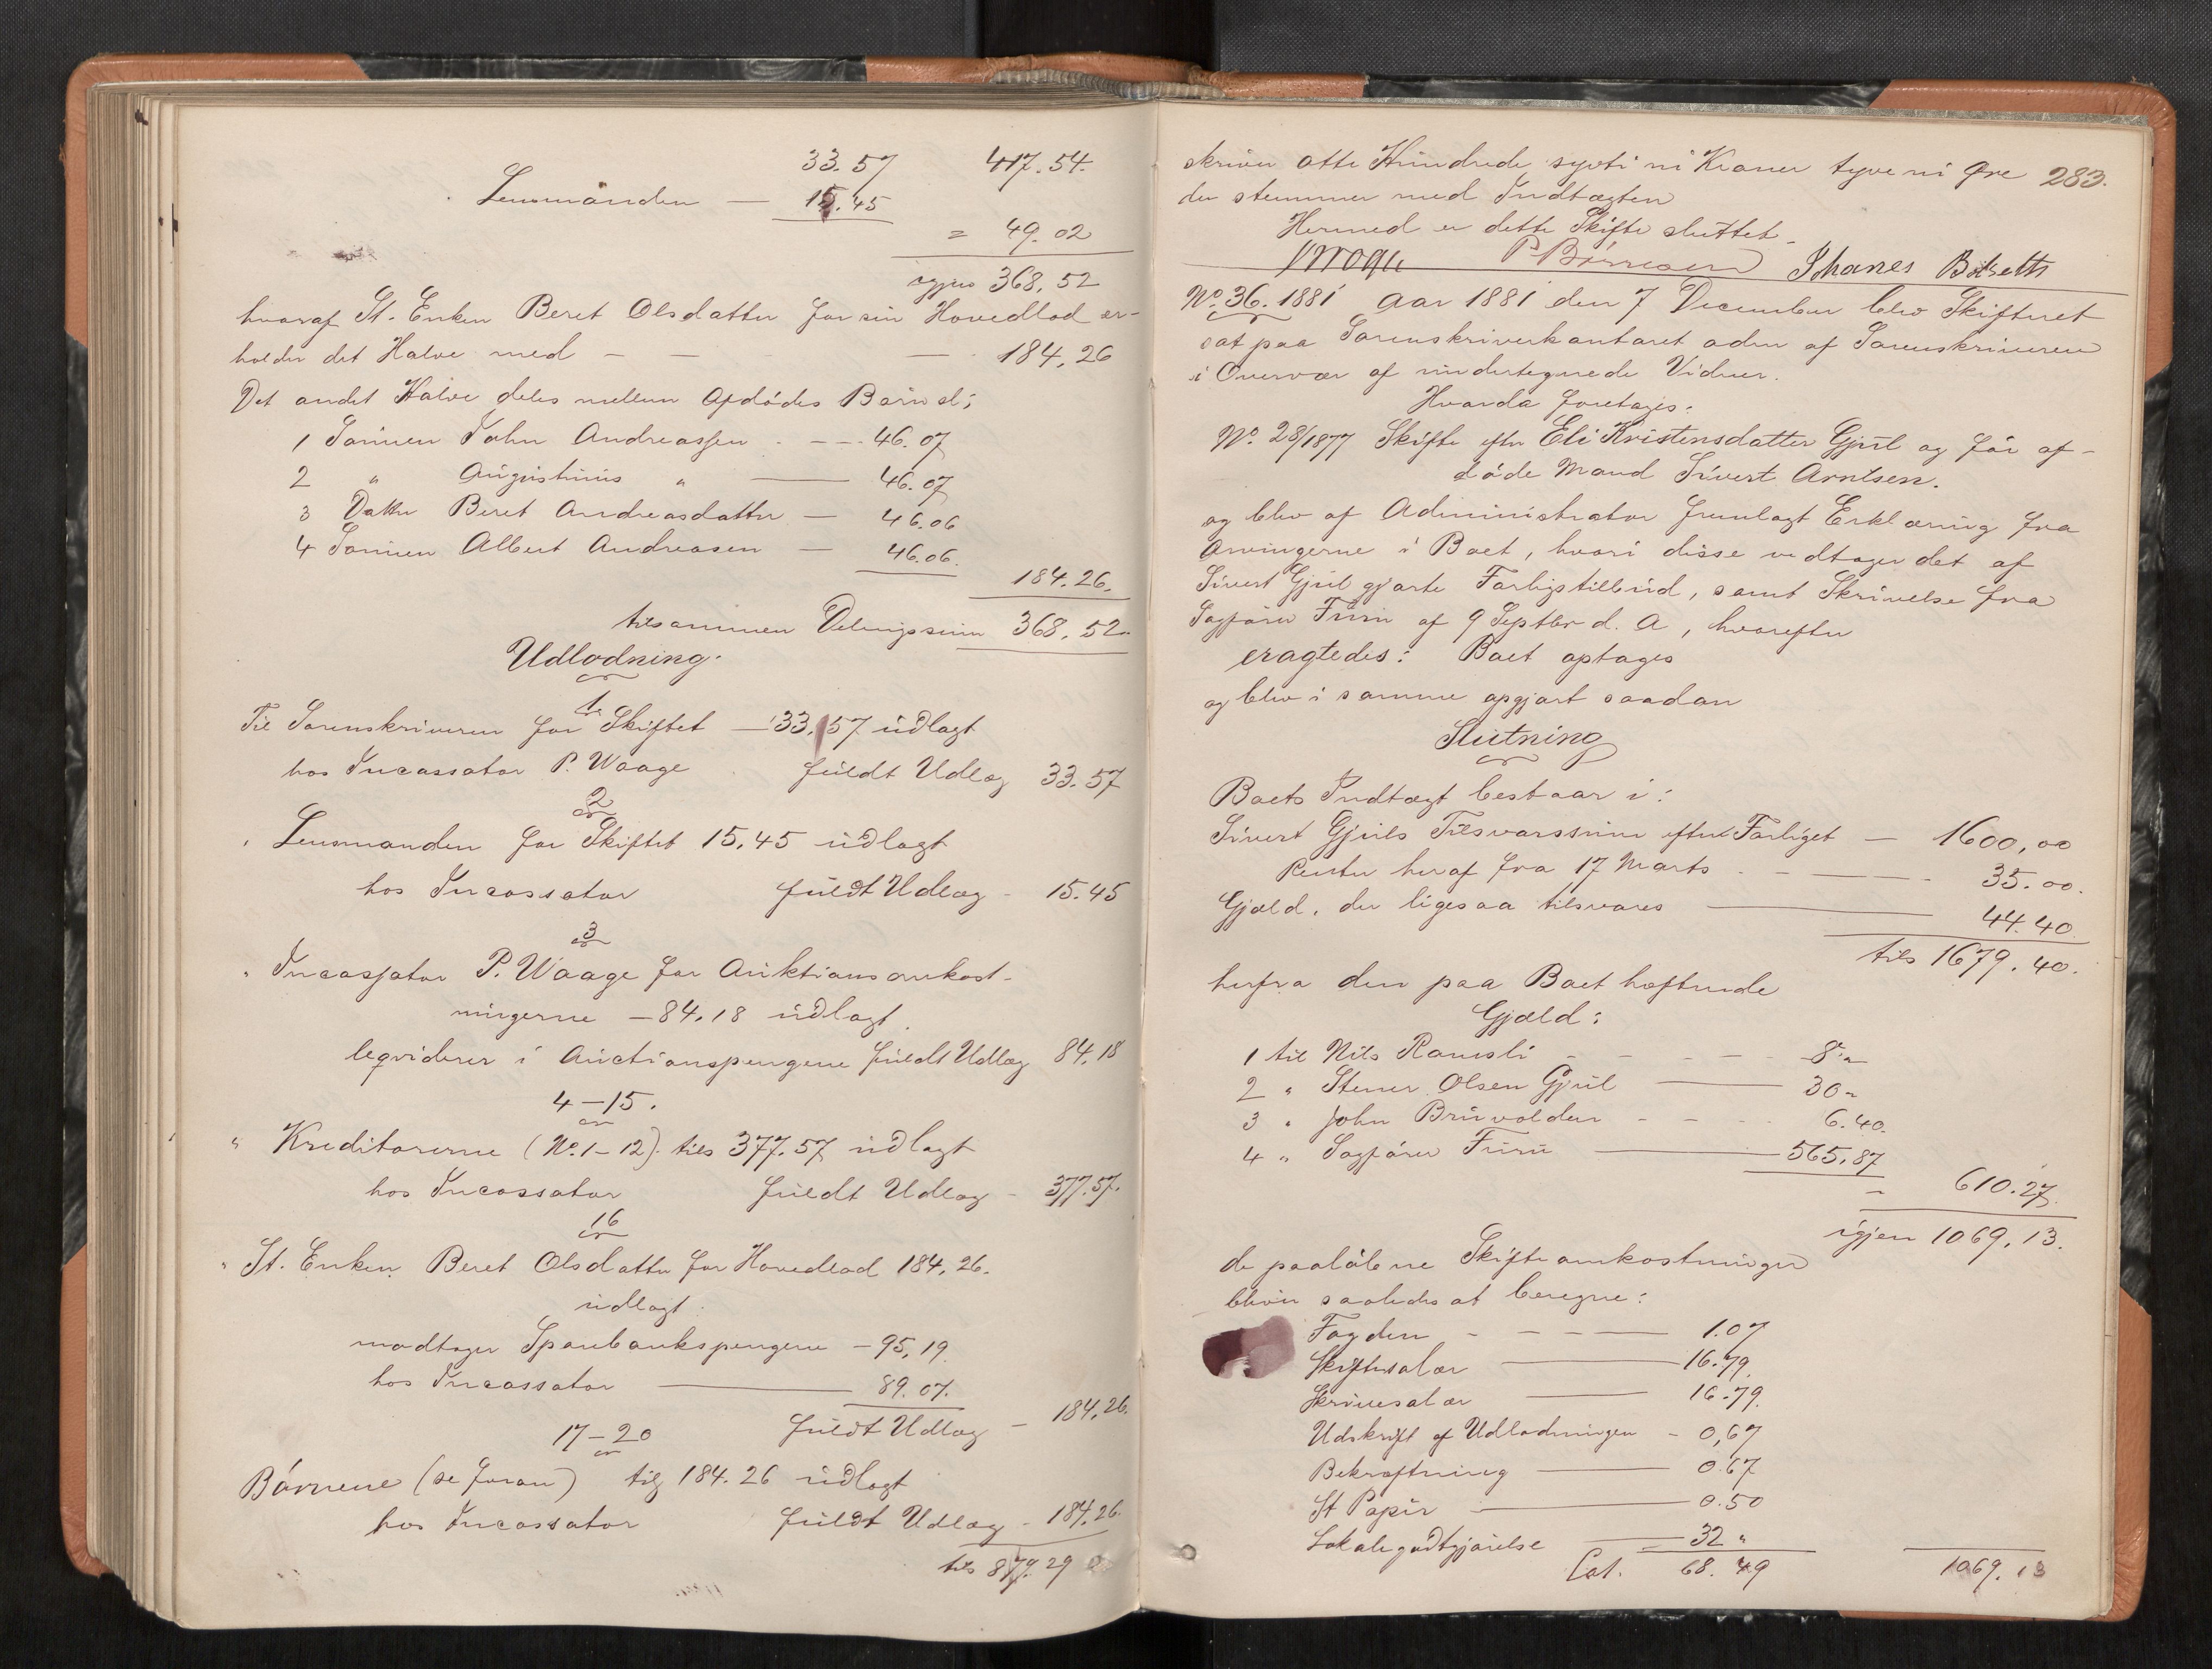 33.57 417.54.
Lensmanden — 15.45
= 49.02
igjen 368.52
hvoraf St. Enken Beret Olsdatter for sin Hovedlod er-
holder det Halve med — — — 184,26
Det andet Halve deles mellem Afdødes Børn d:
1 Sønnen John Andreassen - — 46.07
2 " Augustinus " — 46.07
3 Datter Beret Andreasdatter — 46.06
4 Sønnen Albert Andreasen — 46.06.
184.26.
tilsammen Delingssum 368.52
Udlodning.
1.
Til Sorenskriveren for Skiftet — 33.57 udlagt
hos Incassator P. Waage fuldt Udlæg 33.57
2
" Lensmanden for Skiftet 15.45 udlagt
hos Incassator fuldt Udlæg - 15.45
3
" Incassator P. Waage for Auktionsomkost-
ningerne — 84.18 udlagt
leqviderer i Auctionspengene fuldt Udlæg 84.18
4—15.
" Kreditorerne (No. 1—12). tils 377.57 udlagt
hos Incassator fuldt Udlæg - 377.57.
16
" St. Enken Beret Olsdatter for Hovedlod 184.26.
udlagt.
modtager Sparebankspengene — 95,19
hos Incassator — 89.07.
fuldt Udlæg — 184.26.
17—20
Børnene (se foran) tils 184.26 udlagt
hos Incassator fuldt Udlæg - 184.26.
tils 879.29
283.
skriver otte Hundrede sytti ni Kroner tyve ni Øre
der stemmer med Indtægten
Hermed er dette Skifte sluttet.
No. 36. 1881 Aar 1881 den 7 December blev Skifteret
sat paa Sorenskriverkontoret aden af Sorenskriveren
i Overvær af undertegnede Vidner.
Hvorda foretages:
No. 28/1877 Skifte efter Eli Kristensdatter Gjul og før af-
døde Mand Sivert Arntsen.
og blev af Administrator fremlagt Erklæring fra
Arvingerne i Boet, hvori disse vedtager det af
Sivert Gjul gjorte Forligstilbud, samt Skrivelse fra
Sagfører Furu af 9 Septbr d. A, hvorefter
eragtedes: Boet optages
og blev i samme opgjort saadan
Slutning
Boets Indtægt bestaar i:
Sivert Gjuls Tilsvarssum efter Forliget — 1600,00
Renter heraf fra 17 Marts - — — 35.00.
Gjæld, der ligesaa tilsvares — 44.40
tils 1679.40.
herfra den paa Boet heftende
Gjæld:
1 til Nils Ramsli - - - - 8 "
2 " Stener Olsen Gjul — 30 "
3 " John Bruvolden - - - 6.40.
4 " Sagfører Furu — 565.87
" 610.27.
igjen 1069.13.
de paaløbene Skifteomkostninger
bliver saaledes at beregne:
Fogden - - — — 1.07
Skiftesalær — 16.79.
Skrivesalær — 16.79.
Udskrift af Udlodningen - 0,67
Bekræftning — 0.67
St Papir — 0.50
Lokalegodtgjørelse — 32 "
Lat. 68.49 1069.13